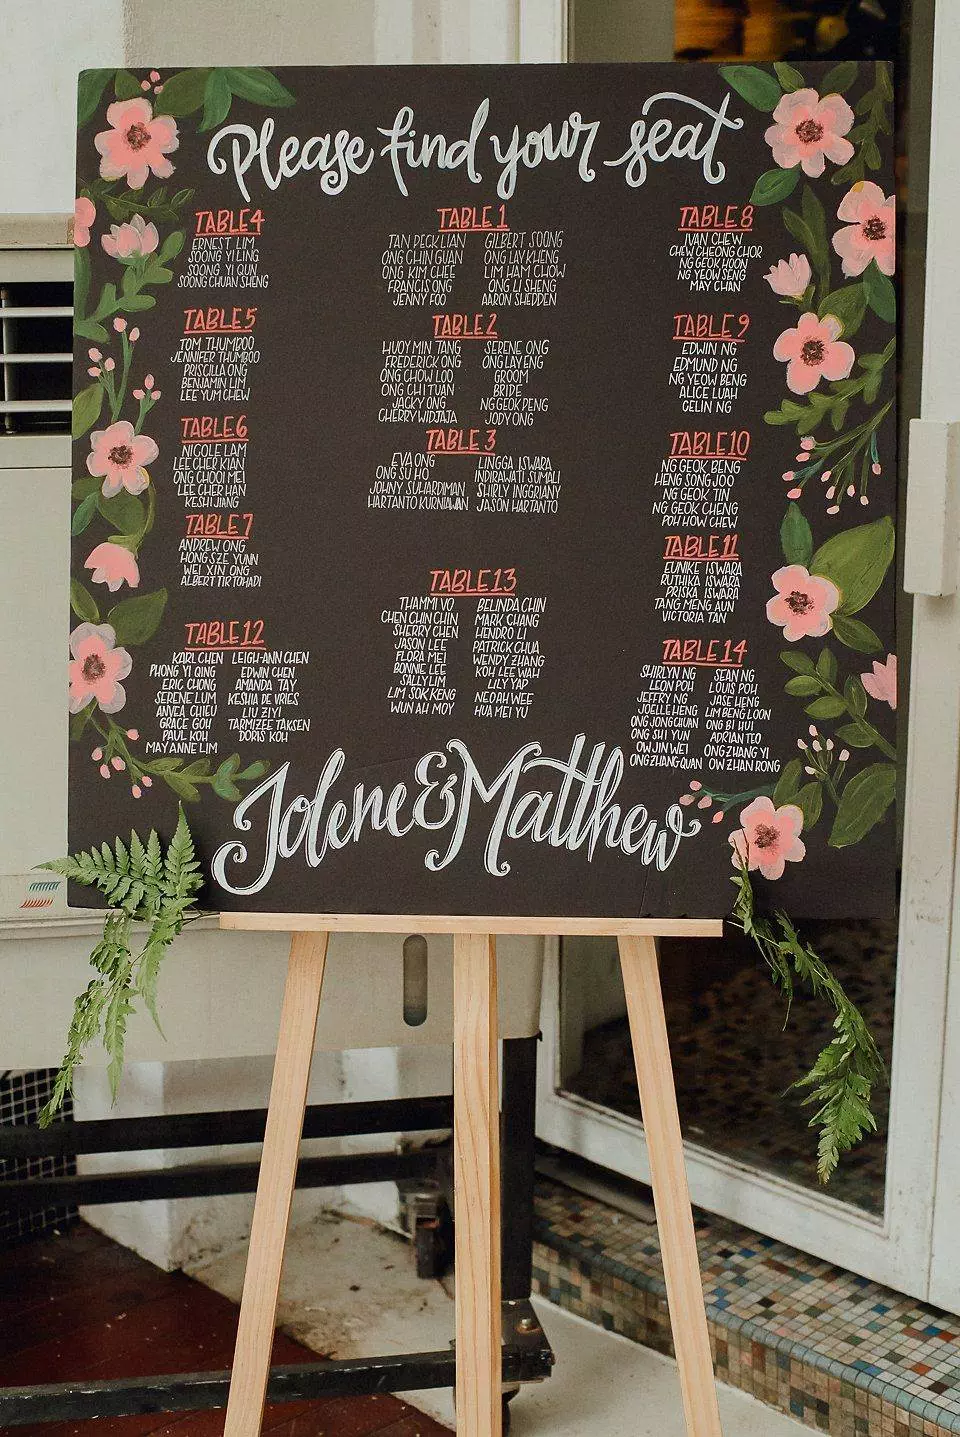 Please find your seat
TABLE 4
ERNEST LIM
SOONG YI LING
SOONG YI QUN
SOONG CHUAN SHENG
TABLE 5
TOM THUMBOO
JENNIFER THUMBOO
PRISCILLA ONG
BENJAMIN LIM
LEE YUM CHEW
TABLE 6
NICOLE LAM
LEE CHER KIAN
ONG CHOOI MEI
LEE CHER HAN
KESHI JIANG
TABLE 7
ANDREW ONG
HONG SZE YUNN
WEI XIN ONG
ALBERT TIRTOHADI
TABLE 12
KARL CHEN LEIGH-ANN CHEN
PHONG YI QING EDWIN CHEN
ERIC CHONG AMANDA TAY
SERENE LUM KESHIA DE VRIES
ANVEA CHIEU LIU ZIYI
GRACE GOH TARMIZEE TAKSEN
PAUL KOH DORIS KOH
MAY ANNE LIM
TABLE 1
TAN PECK LIAN GILBERT SOONG
ONG CHIN GUAN ONG LAY KHENG
ONG KIM CHEE LIM HAM CHOW
FRANCIS ONG ONG LI SHENG
JENNY FOO AARON SHEDDEN
TABLE 2
HUOY MIN TANG SERENE ONG
FREDERICK ONG ONG LAY ENG
ONG CHOW LOO GROOM
ONG CHI TUAN BRIDE
JACKY ONG NG GEOK PENG
CHERRY WIDJAJA JODY ONG
TABLE 3
EVA ONG LINGGA ISWARA
ONG SU HO INDIRAWATI SUMALI
JOHNY SUHARDIMAN SHIRLY INGGRIANY
HARTANTO KURNIAWAN JASON HARTANTO
TABLE 13
THAMMI VO BELINDA CHIN
CHEN CHIN CHIN MARK CHANG
SHERRY CHEN HENDRO LI
JASON LEE PATRICK CHUA
FLORA MEI WENDY ZHANG
BONNIE LEE KOH LEE WAH
SALLY LIM LILY YAP
LIM SOK KENG NEO AH WEE
WUN AH MOY HUA MEI YU
TABLE 8
IVAN CHEW
CHEW CHEONG CHOR
NG GEOK HOON
NG YEOW SENG
MAY CHAN
TABLE 9
EDWIN NG
EDMUND NG
NG YEOW BENG
ALICE LUAH
CELIN NG
TABLE 10
NG GEOK BENG
HENG SONG JOO
NG GEOK TIN
NG GEOK CHENG
POH HOW CHEW
TABLE 11
EUNIKE ISWARA
RUTHIKA ISWARA
PRISKA ISWARA
TANG MENG AUN
VICTORIA TAN
TABLE 14
SHIRLYN NG SEAN NG
LEON POH LOUIS POH
JEFFRY NG JASE HENG
JOELLE HENG LIM BENG LOON
ONG JONG CHUAN ONG BI HUI
ONG SHI YUN ADRIAN TEO
OW JIN WEI ONG ZHANG YI
ONG ZHANG QUAN OW ZHAN RONG
Jolene & Matthew